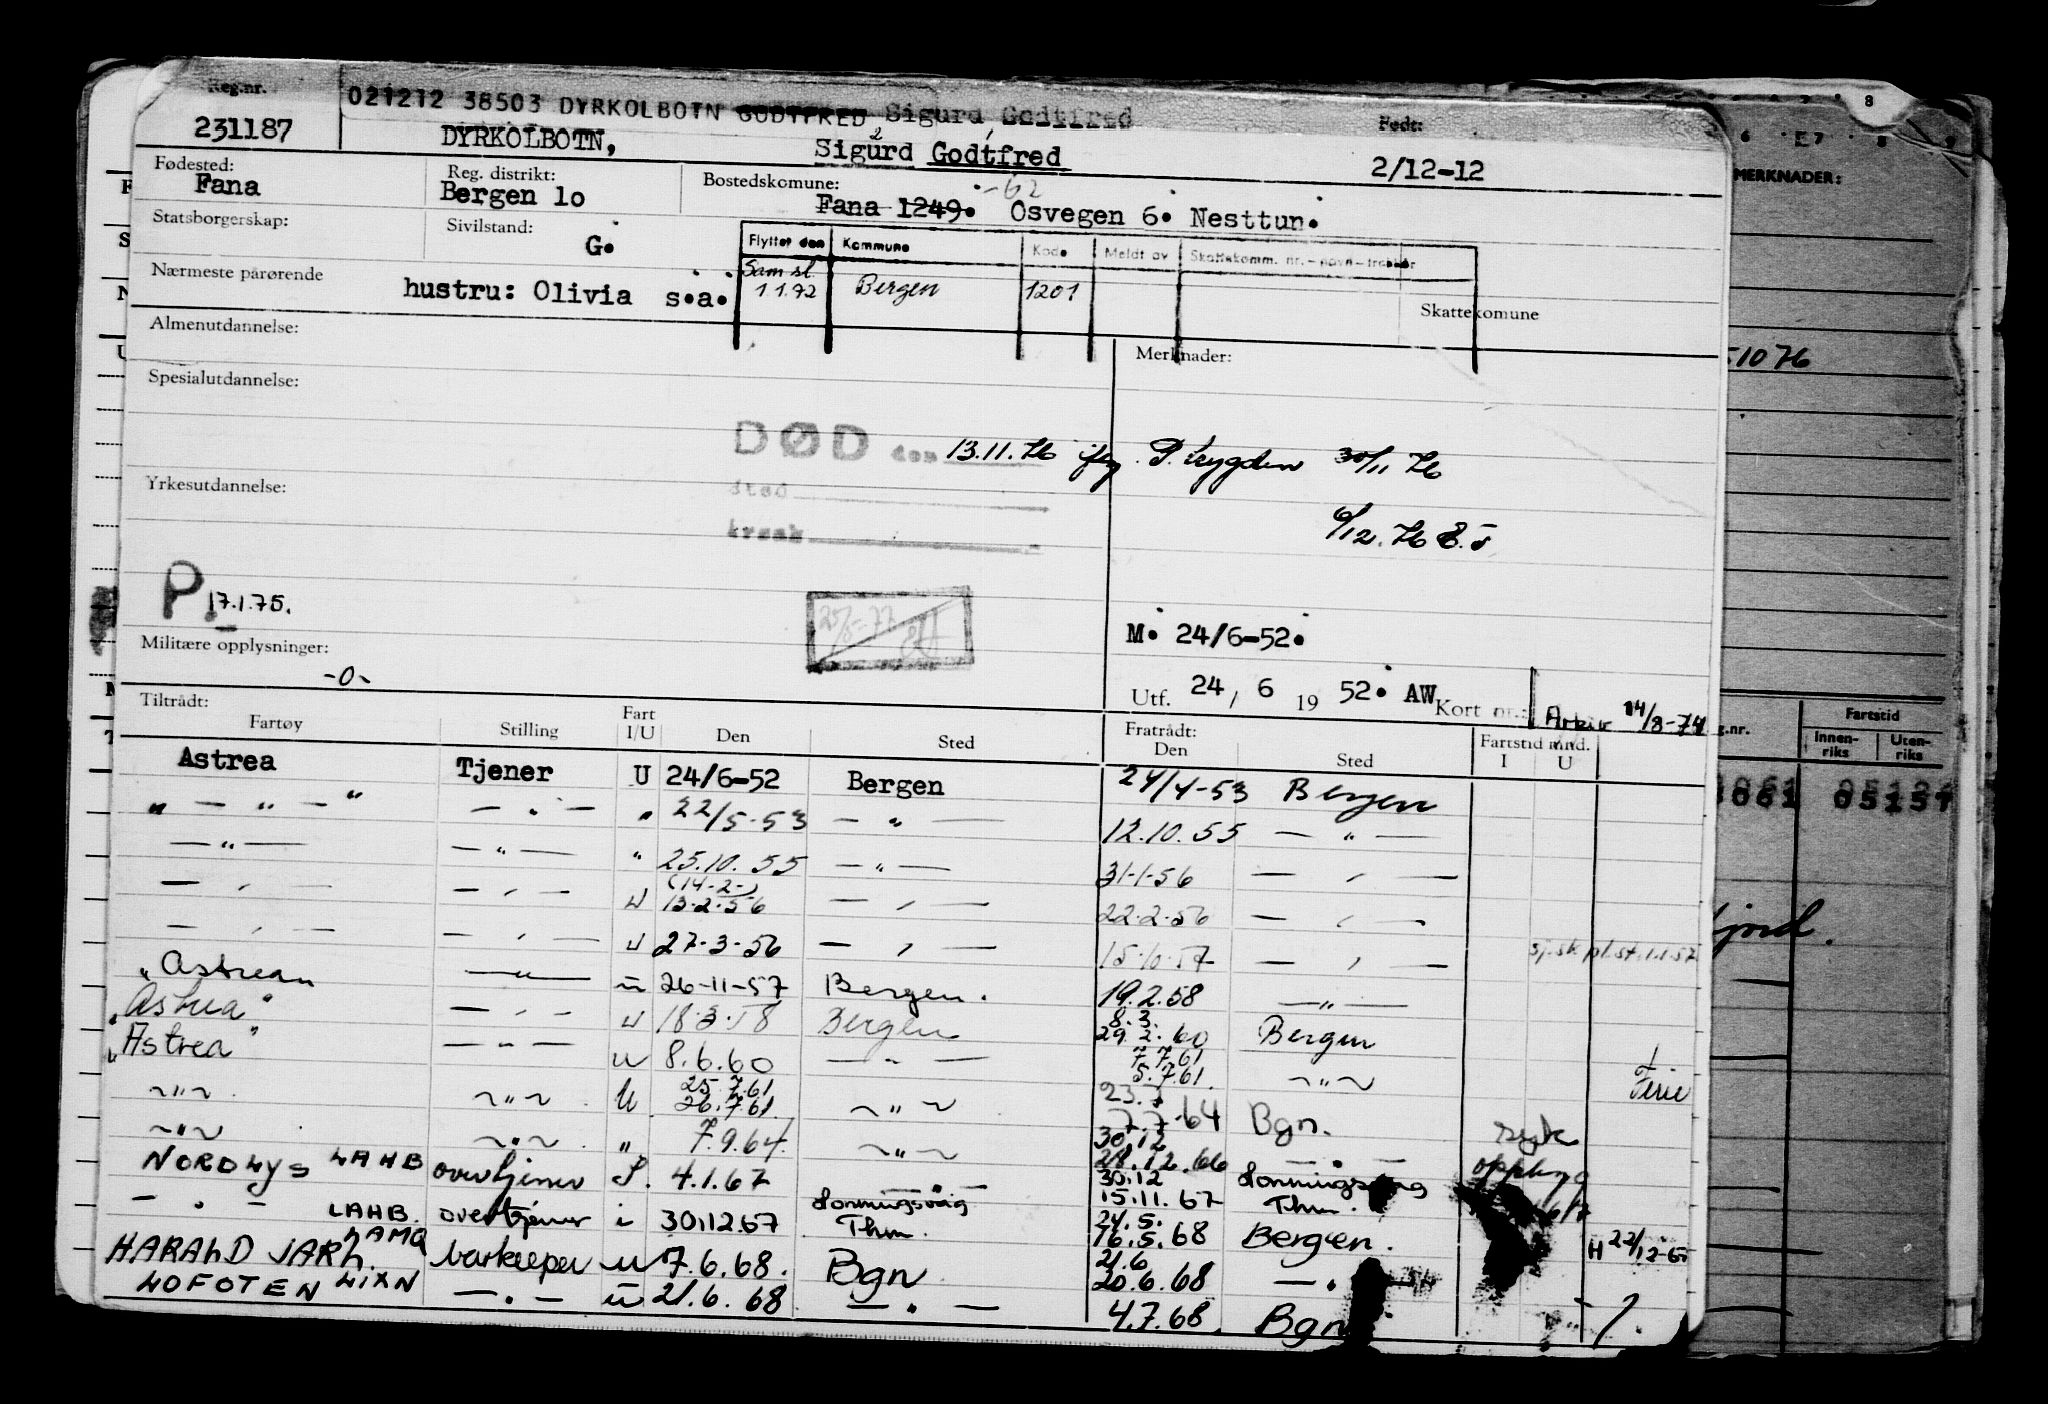 Reg.nr. 021212 38503 DYRKOLBOTN GODTFRED Sigurd Godtfred
231187 DYRKOLBOTN, Sigurd Godtfred Født: 2/12-12
Fødested: Fana Reg. distrikt: Bergen 10 Bostedskomune: Fana 1249. -62 Osvegen 6. Nesttun.
Statsborgerskap: Sivilstand: G. Flyttet den Kommune Kode Meldt av Skattekomm. nr.
Nærmeste pårørende hustru: Olivia s.a. Sam.sl. 1 1.72 Bergen 1201 Skattekomune
Almenutdannelse: Merknader:
Spesialutdannelse:
DØD den 13.11.76 30/11 76
sted
Yrkesutdannelse:
årsak 6/12.76
P 17.1.75.
25/5-77
M. 24/6-52.
Militære opplysninger: -0-
Utf. 24, 6 19 52. AW Kort nr.: Arkiv 14/8-74
Tiltrådt: Fratrådt:
Fartøy Stilling Fart I/U Den Sted Den Sted Fartstid mnd. I U
Astrea Tjener U 24/6-52 Bergen 24/4-53 Bergen
" — " — " — " — " 22/5-53 — " — 12.10.55 — " —
— " — — " — " 25.10.55 — " — 31-1-56 — " —
— " — — " — U (14-2-) 13.2.56 — " — 22.2.56 — " —
— " — — " — U 27-3-56 — " — 15.10.57 — " — sj.sk pl.st.1.1.57
"Astrea" — " — U 26-11-57 Bergen. 19.2.58 — " —
"Astrea" — " — U 18.3.58 Bergen 8.3. 29.2.60 Bergen
"Astrea" — " — U 8.6.60 — " — 7.7.61 5.7.61. ~ " ~ Ferie
~ " ~ ~ " ~ U 25.7.61 26.7.61 ~ " ~ 23.7 7.7-64 Bgn. syk
~ " ~ ~ " ~ " 7.9.64. ~ " ~ 30.12 28.12.66 — " —
NORDLYS LAHB overtjener I. 4.1.67 — " — 30.12 15.11.67 Honningsvåg Thm.
— " — LAHB. overtjener i 30.12.67 Honningsvåg Thm. 24.5. 16.5.68 Bergen. H 22/12-67
HARALD JARL. LAMQ barkeeper U 7.6.68. Bgn 21.6 20.6.68 — " —
LOFOTEN LIXN — " — U 21.6.68 — " — 4.7.68. Bgn
MERKNADER:
51076
g.nr. Fartstid
Innenriks Utenriks